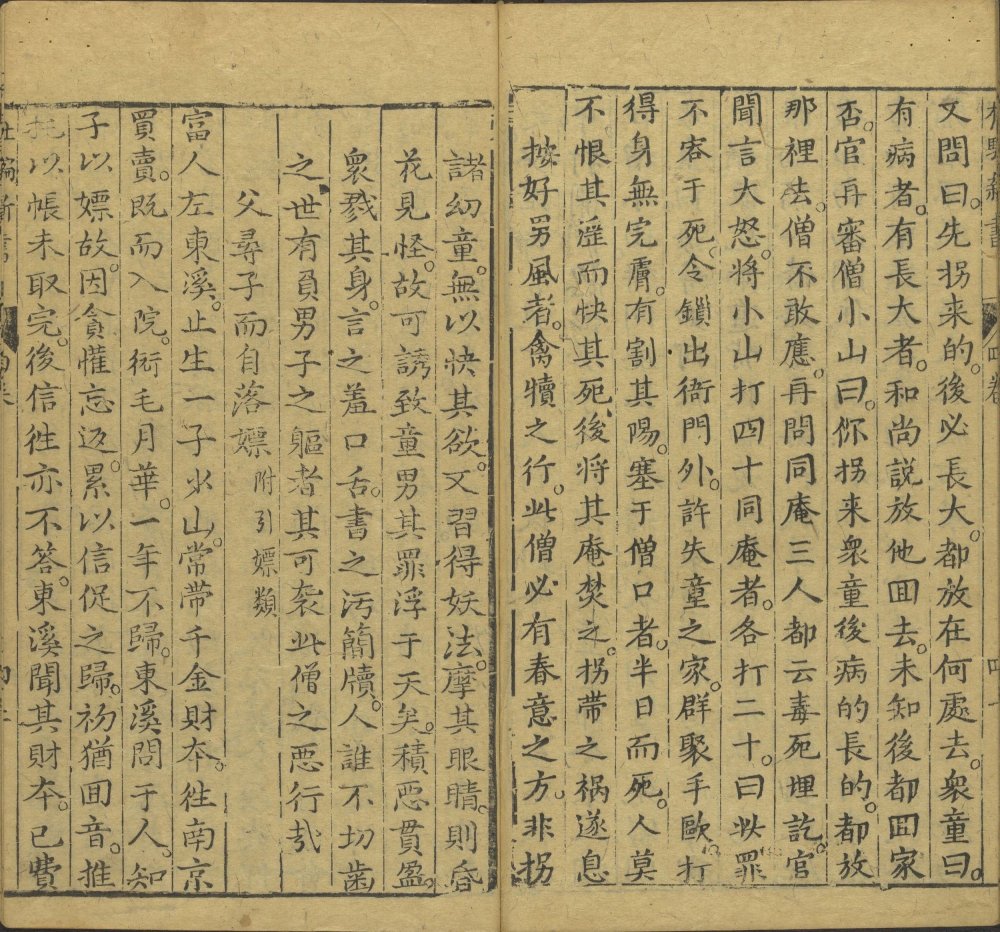 又問曰。先拐来的。後必長大。都放在何處去。衆童曰。
有病者。有長大者。和尚説放他囬去。未知後都囬家
否。官再審僧小山曰。你拐来衆童後病的長的。都放
那裡去。僧不敢應。再問同庵三人都云毒死埋訖。官
聞言大怒。將小山打四十同庵者。各打二十。曰此罪
不容于死。令鎖出衙門外。許失童之家。群聚手毆。打
得身無完膚。有割其陽。塞于僧口者。半日而死。人莫
不恨其滛而快其死。後将其庵焚之。拐带之禍遂息
按好男風者。禽犢之行。此僧必有春意之方。非拐
諸幼童。無以快其欲。又習得妖法。摩其眼睛。則昏
花見怪。故可誘致童男其罪浮于天矣。積恶貫盈。
裂戮其身。言之羞口舌。書之汚簡牘。人誰不切齒
之世有員男子之軀者其可袭此僧之恶行㢤
父尋子而自落嫖 附引嫖類
富人左東溪。止生一子少山。常带千金財夲。徃南京
買賣。既而入院。衒毛月華。一年不歸。東溪問于人。知
子以嫖故。因貪懽忘返。累以信促之歸。初猶囬音。推
托以帳未取完。後信徃亦不答。東溪聞其財夲。已費